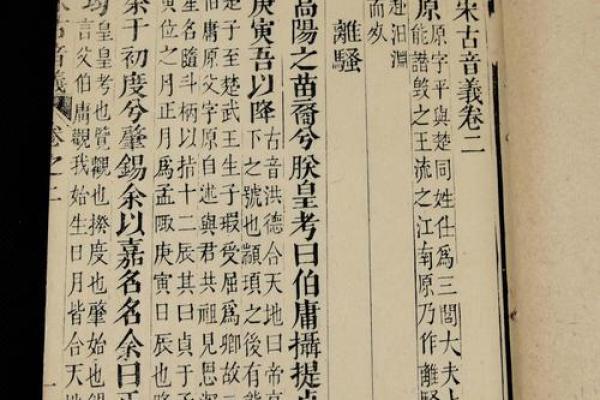 宋古音義卷二
原原字平與楚同姓仕爲三閭大夫上
能譖毀之王流之江南原乃作離騷
赴汨淵
而
離騷
高陽之苗裔兮朕皇考曰伯庸攝提貞
庚寅吾以降古音洪德合天地曰帝高
下之號也顓頊之後有熊
楚子至楚武王生子瑕受屈爲卿故
伯庸原父字原自述與君共祖見恩深
星名隨斗柄以指十二辰其曰貞于
寅位之月正月爲孟陬庚寅日辰也
余于初度兮肇錫余以嘉名名余曰正
均皇皇考也覽觀也揆度也肇始也錫
言父伯庸觀我始生日月皆合天地
宋古音義 卷之二 一